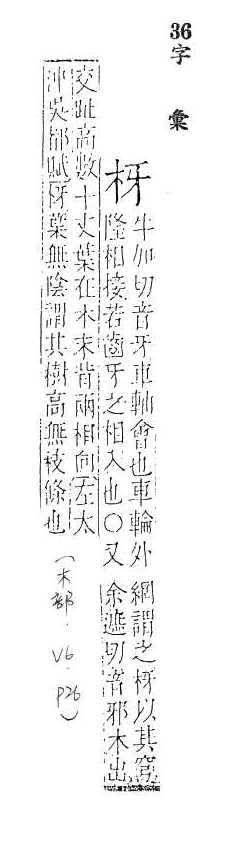 36 字 彙
枒 牛加切音牙車輞會也車輪外綱謂之枒以其穹
隆相接若齒牙之相入也○又余遮切音邪木出
交趾高數十丈葉在木末背兩相向左太
沖吳都賦枒葉無陰謂其樹高無枝條也
(木部. V6. P26)